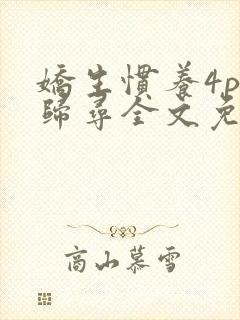 嬌生慣養4p
歸尋全文免
高山慕雪